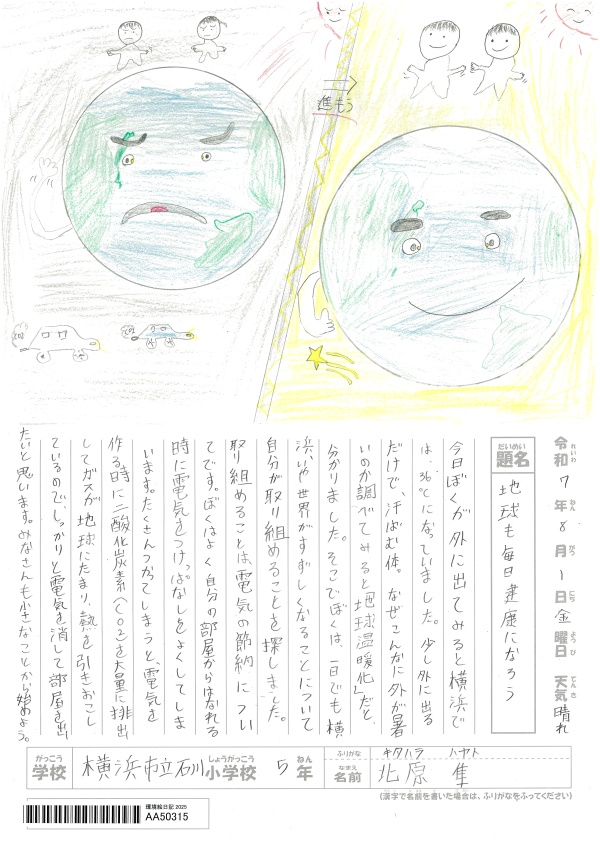 進もう
CO2
CO2
CO2
令和7年8月1日金曜日 天気 晴れ
れいわ ねん がつ にち ようび てんき
だいめい
題名 地球も毎日健康になろう
今日ぼくが外に出てみると横浜で
は、36℃になっていました。少し外に出る
だけで、汗ばむ体。なぜこんなに外が暑
いのか調べてみると「地球温暖化」だと、
分かりました。そこでぼくは、一日でも横
浜、いや世界がすずしくなることについて
自分が取り組めることを探しました。
取り組めることは、電気の節納につい
てです。ぼくはよく自分の部屋からはなれる
時に電気をつけっぱなしをよくしてしま
います。たくさんつかってしまうと、電気を
作る時に二酸化炭素(CO2)を大量に排出
してガスが地球にたまり、熱を引きおこし
ているので、しっかりと電気を消して部屋を出
たいと思います。みなさんも小さなことから始めよう。
がっこう しょうがっこう ねん ふりがな キタハラ ハヤト
学校 横浜市立石川小学校 5年 なまえ 名前 北原 隼
(漢字で名前を書いた場合は、ふりがなをふってください)
環境絵日記 2025
AA50315